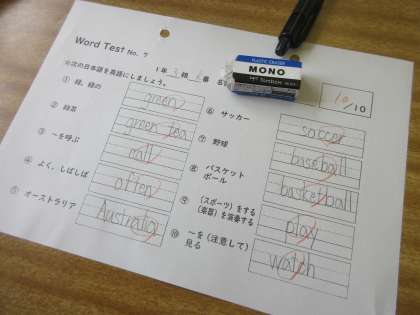 Word Test No. 7
1年 3組 6番 名
※次の日本語を英語にしましょう。
10/10
① 緑, 緑の
green
② 緑茶
green tea
③ ～を呼ぶ
call
④ よく, しばしば
often
⑤ オーストラリア
Australia
⑥ サッカー
soccer
⑦ 野球
baseball
⑧ バスケット
ボール
basketball
⑨ (スポーツ)をする
(楽器)を演奏する
play
⑩ ～を(注意して)
見る
watch
PLASTIC ERASER
MONO
Tombow